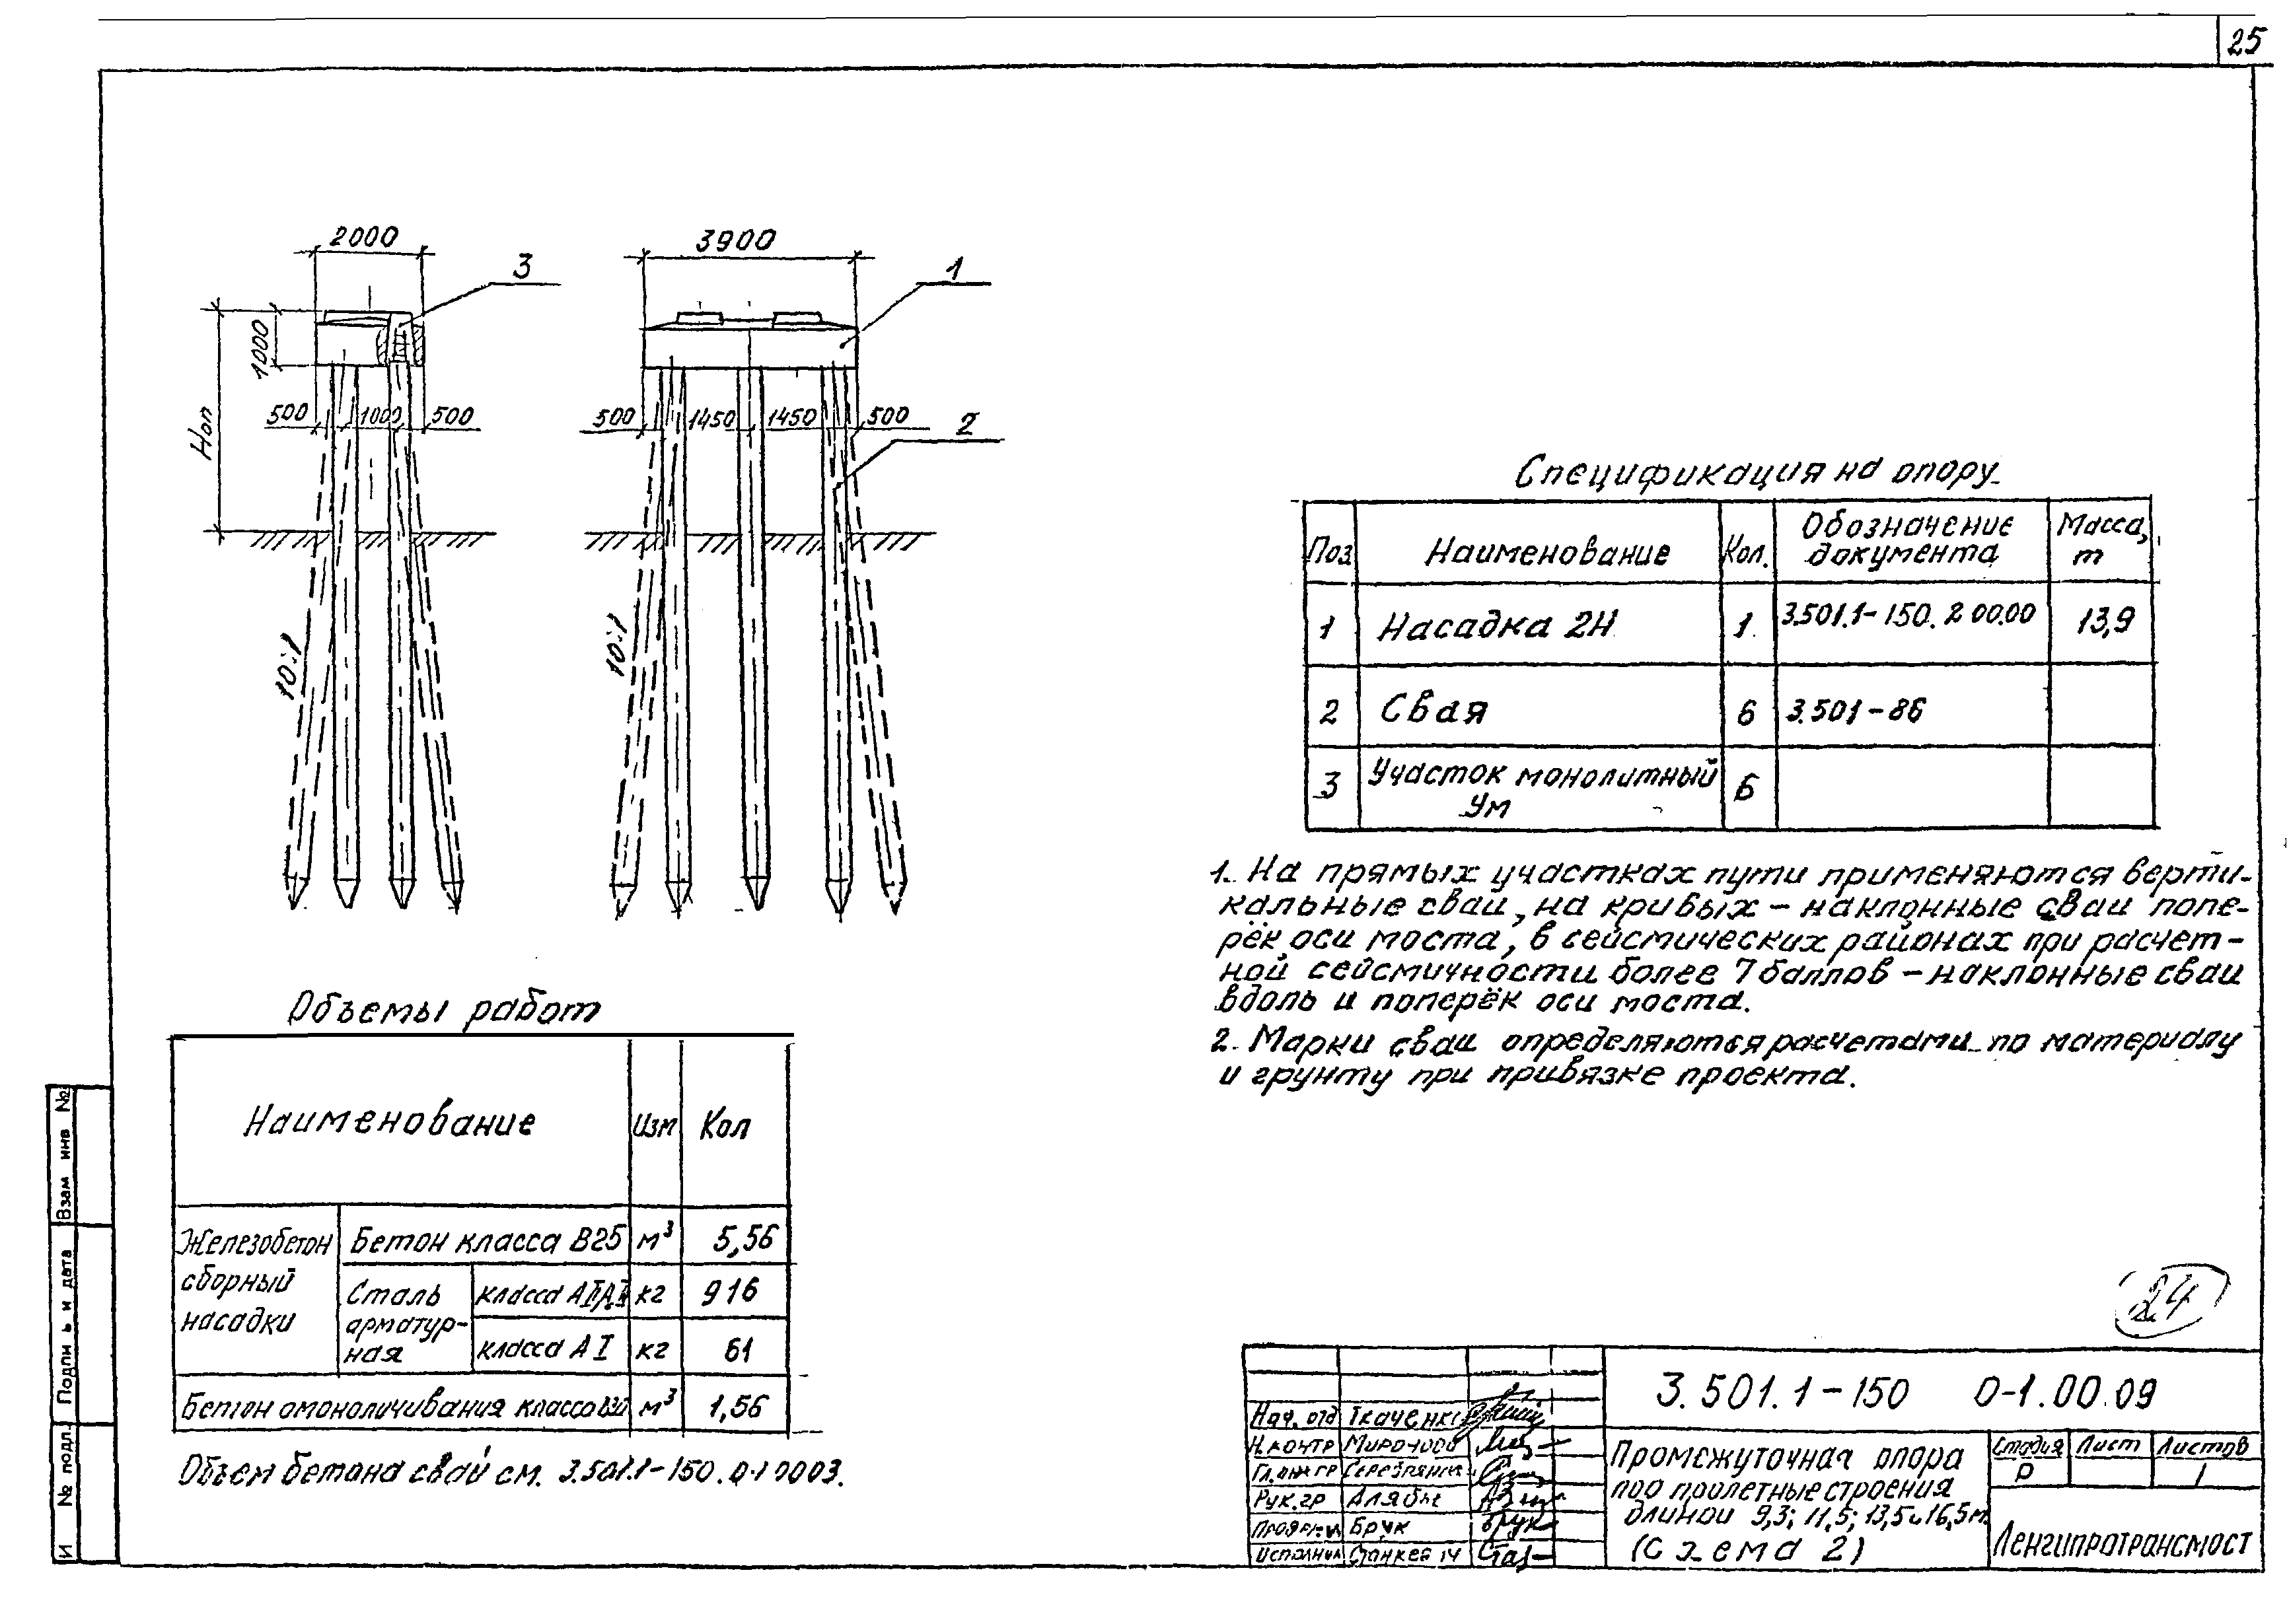 25
2000
3
3900
1
1000
Ноп
500
1000
500
500
1450
1450
500
2
10:1
10:1
Спецификация на опору
Поз
Наименование
Кол.
Обозначение документа
Масса, т
1 Насадка 2Н 1 3.501.1-150.2 00.00 13,9
2 Свая 6 3.501-86
3 Участок монолитный Ум 6
1. На прямых участках пути применяются верти-
кальные сваи, на кривых - наклонные сваи попе-
рёк оси моста, в сейсмических районах при расчет-
ной сейсмичности более 7 баллов - наклонные сваи
вдоль и поперёк оси моста.
2. Марки сваи определяются расчетами по материалу
и грунту при привязке проекта.
Объемы работ
Наименование Изм Кол
Железобетон сборный насадки
Бетон класса В25 м³ 5,56
Сталь арматур-
ная
класса АII, кг 916
класса АI кг 61
Бетон омоноличивания класса В30 м³ 1,56
Объем бетона свай см. 3.501.1-150.0-1 0003.
24
Взам инв №
Подпись и дата
И № подл.
3.501.1-150 0-1.00.09
Нач. отд Ткаченко
Н.контр Миронова
Гл.инж.гр
Рук.гр
Брук
Исполнил
Промежуточная опора
под пролетные строения
длиной 9,3; 11,5; 13,5 и 16,5 м.
(Схема 2)
Стадия Лист Листов
Р 1
Ленгипротрансмост